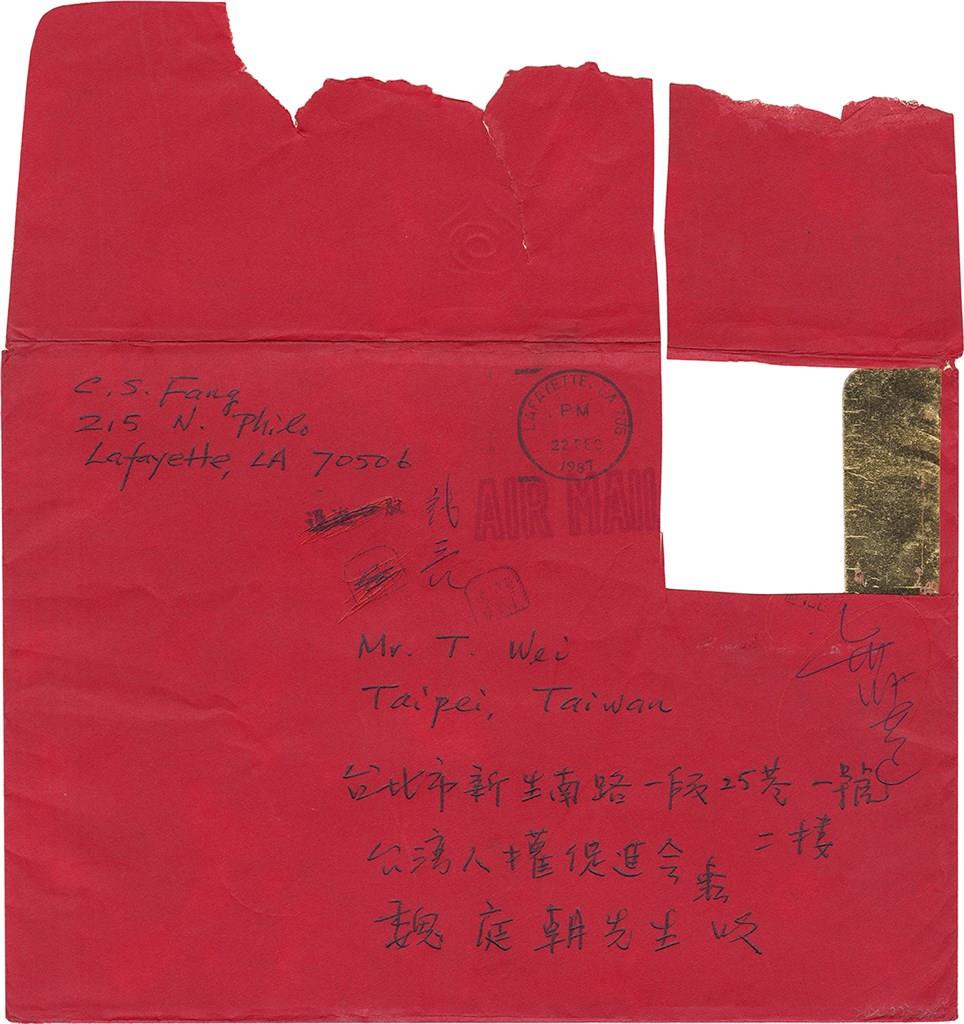 C. S. Fang
215 N. Philo
Lafayette, LA 70506
LAFAYETTE, LA 705
PM
22 DEC
1987
AIR MAIL
Mr. T. Wei
Taipei, Taiwan
台北市新生南路一段25巷一號
二楼
台湾人權促進会
魏庭朝先生收